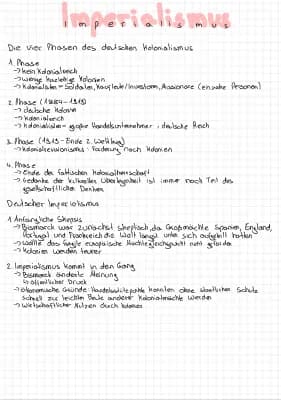 Imperialismus
Imperialismus
Die vier Phasen des deutschen Kolonialismus
1. Phase
→ kein Kolonialreich
→ wenige kurzlebige Kolonien
→ Kolonialisten = Soldaten, Kaufleute/Investoren, Missionare (einzelne Personen)
2. Phase (1884-1919)
→ deutsche Kolonie
→ Kolonialreich
→ Kolonialisten = große Handelsunternehmer, deutsche Reich
3. Phase (1919-Ende 2. Weltkrieg)
→ Kolonialrevisionismus: Forderung nach Kolonien
4. Phase
→ Ende der faktischen Kolonialherrschaft
→ Gedanke der kulturellen Überlegenheit ist immer noch Teil des
gesellschaftlichen Denkens
Deutscher Imperialismus
1. Anfängliche Skepsis
→ Bismarck war zunächst skeptisch, da Großmächte Spanien, England,
Portugal und Frankreich die Welt längst unter sich aufgeteilt hatten
→ wollte das fragile europäische Mächtegleichgewicht nicht gefährden
→ Kolonien werden teurer
2. Imperialismus kommt in den Gang
→ Bismarck änderte Meinung
öffentlicher Druck
→ ökonomische Gründe: Handelsstützpunkte konnten ohne staatlichen Schutz
schnell zur leichten Beute anderer Kolonialmächte werden
→ wirtschaftlicher Nutzen durch Kolonien